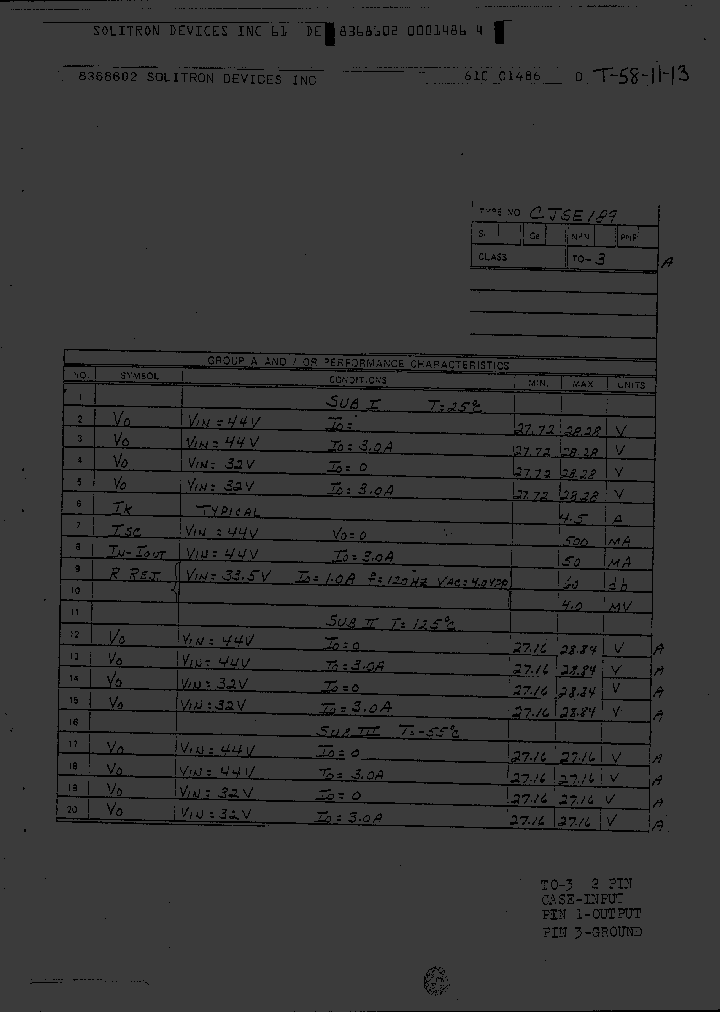 SOLITRON DEVICES INC 61 DE 8368602 0001486 4
8368602 SOLITRON DEVICES INC 61C 01486 D T-58-11-13
TYPE NO CJSE189
Si Ge NPN PNP
CLASS TO-3 A
GROUP A AND / OR PERFORMANCE CHARACTERISTICS
NO. SYMBOL CONDITIONS MIN. MAX UNITS
1 SUB I T=25°C
2 VO VIN=44V IO= 27.72 28.28 V
3 VO VIN=44V IO=3.0A 27.72 28.28 V
4 VO VIN=32V IO=0 27.72 28.28 V
5 VO VIN=32V IO=3.0A 27.72 28.28 V
6 IK TYPICAL 4.5 A
7 ISC VIN=44V VO=0 500 MA
8 IN-IOUT VIN=44V IO=3.0A 50 MA
9 R REJ. VIN=33.5V IO=1.0A f=120HZ VAC=4.0VPP 60 db
10 4.0 MV
11 SUB II T=125°C
12 VO VIN=44V IO=0 27.16 28.84 V A
13 VO VIN=44V IO=3.0A 27.16 28.84 V A
14 VO VIN=32V IO=0 27.16 28.84 V A
15 VO VIN=32V IO=3.0A 27.16 28.84 V A
16 SUB III T=-55°C
17 VO VIN=44V IO=0 27.16 27.16 V A
18 VO VIN=44V IO=3.0A 27.16 27.16 V A
19 VO VIN=32V IO=0 27.16 27.16 V A
20 VO VIN=32V IO=3.0A 27.16 27.16 V A
TO-3 2 PIN
CASE-INPUT
PIN 1-OUTPUT
PIN 3-GROUND